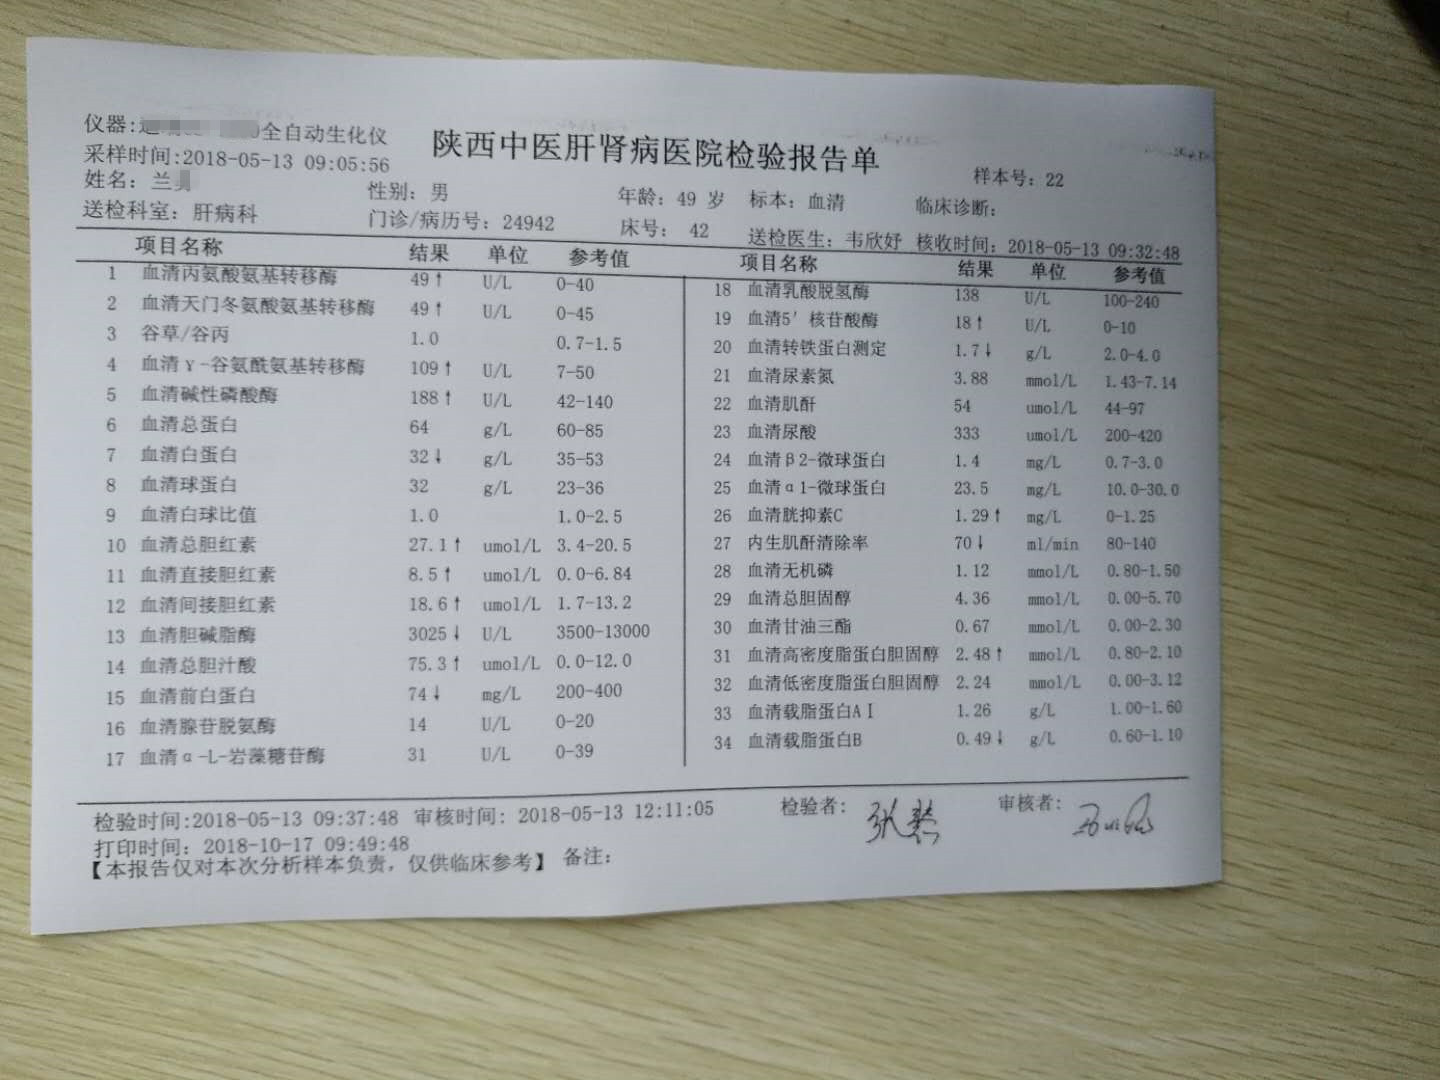 仪器: 全自动生化仪
陕西中医肝肾病医院检验报告单
采样时间:2018-05-13 09:05:56
样本号: 22
姓名: 兰
性别: 男 年龄: 49 岁 标本: 血清 临床诊断:
送检科室: 肝病科 门诊/病历号: 24942 床号: 42 送检医生: 韦欣妤 核收时间: 2018-05-13 09:32:48
项目名称 结果 单位 参考值
1 血清丙氨酸氨基转移酶 49↑ U/L 0-40
2 血清天门冬氨酸氨基转移酶 49↑ U/L 0-45
3 谷草/谷丙 1.0 0.7-1.5
4 血清γ-谷氨酰氨基转移酶 109↑ U/L 7-50
5 血清碱性磷酸酶 188↑ U/L 42-140
6 血清总蛋白 64 g/L 60-85
7 血清白蛋白 32↓ g/L 35-53
8 血清球蛋白 32 g/L 23-36
9 血清白球比值 1.0 1.0-2.5
10 血清总胆红素 27.1↑ umol/L 3.4-20.5
11 血清直接胆红素 8.5↑ umol/L 0.0-6.84
12 血清间接胆红素 18.6↑ umol/L 1.7-13.2
13 血清胆碱脂酶 3025↓ U/L 3500-13000
14 血清总胆汁酸 75.3↑ umol/L 0.0-12.0
15 血清前白蛋白 74↓ mg/L 200-400
16 血清腺苷脱氨酶 14 U/L 0-20
17 血清α-L-岩藻糖苷酶 31 U/L 0-39
项目名称 结果 单位 参考值
18 血清乳酸脱氢酶 138 U/L 100-240
19 血清5′核苷酸酶 18↑ U/L 0-10
20 血清转铁蛋白测定 1.7↓ g/L 2.0-4.0
21 血清尿素氮 3.88 mmol/L 1.43-7.14
22 血清肌酐 54 umol/L 44-97
23 血清尿酸 333 umol/L 200-420
24 血清β2-微球蛋白 1.4 mg/L 0.7-3.0
25 血清α1-微球蛋白 23.5 mg/L 10.0-30.0
26 血清胱抑素C 1.29↑ mg/L 0-1.25
27 内生肌酐清除率 70↓ ml/min 80-140
28 血清无机磷 1.12 mmol/L 0.80-1.50
29 血清总胆固醇 4.36 mmol/L 0.00-5.70
30 血清甘油三酯 0.67 mmol/L 0.00-2.30
31 血清高密度脂蛋白胆固醇 2.48↑ mmol/L 0.80-2.10
32 血清低密度脂蛋白胆固醇 2.24 mmol/L 0.00-3.12
33 血清载脂蛋白AⅠ 1.26 g/L 1.00-1.60
34 血清载脂蛋白B 0.49↓ g/L 0.60-1.10
检验时间:2018-05-13 09:37:48 审核时间: 2018-05-13 12:11:05 检验者: 审核者:
打印时间: 2018-10-17 09:49:48
【本报告仅对本次分析样本负责，仅供临床参考】 备注: